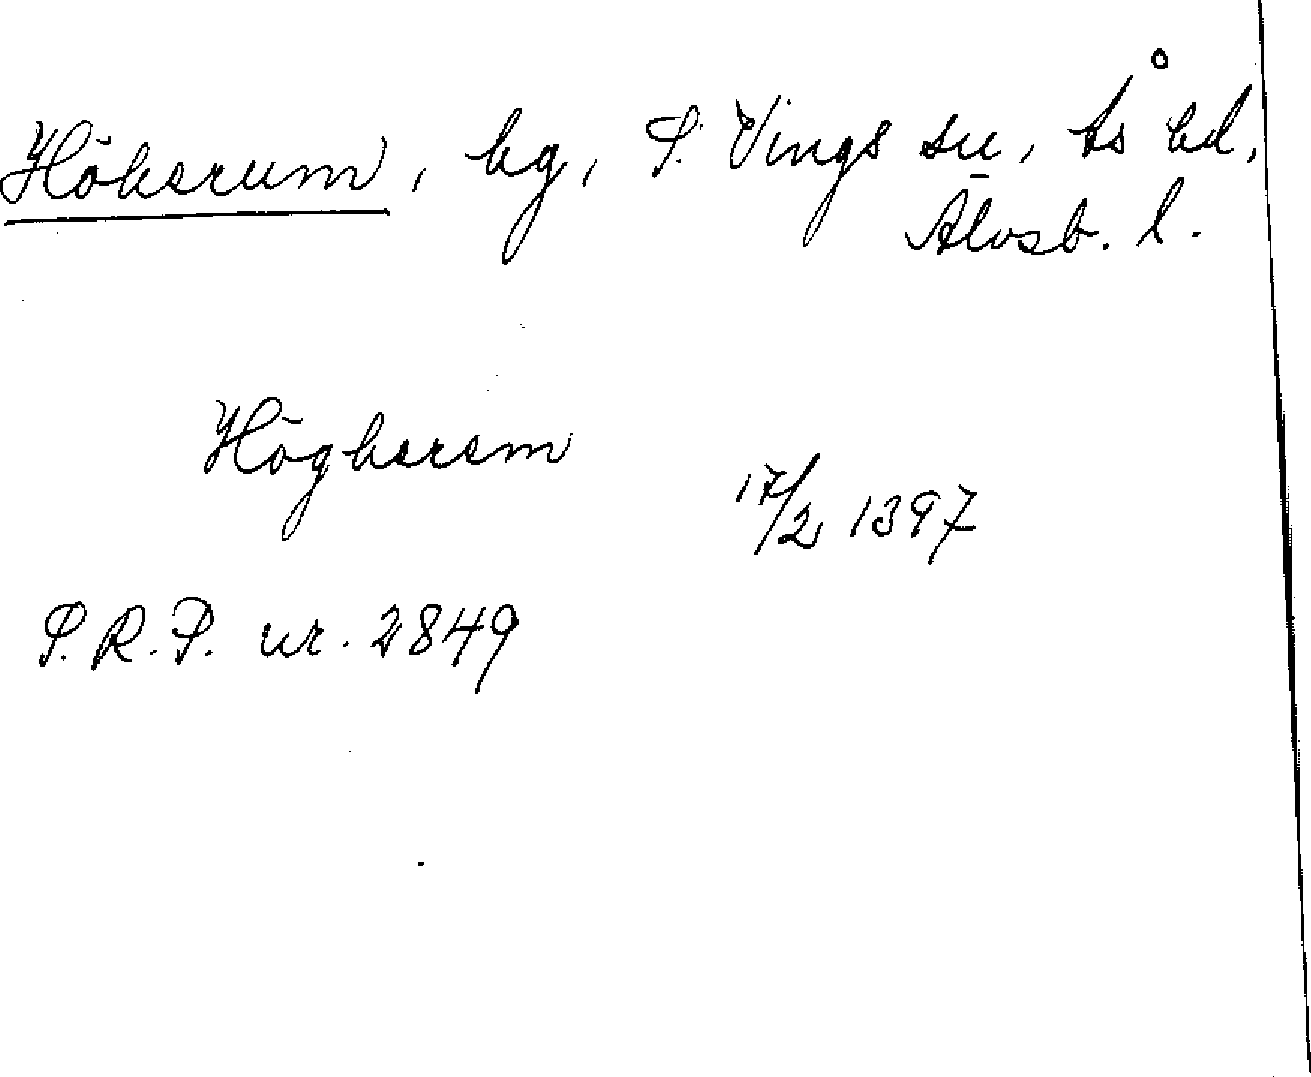 Hökerum, by, S. Vings sn, Ås hd,
Älvsb. l.
Högkerem
17/2 1397
S.R.P. nr. 2849